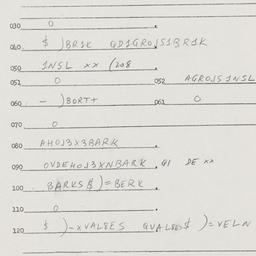 030 0
040 $ )BR1K QD1GROJS1BR1K
050 1NSL xx (208
051 0 052 AGROJS1NSL
060 - )BORT+ 061 0
070 0
080 AHOJ3X3BARK
090 OVDEHOJ3XNBARK, Q1 DE xx
100 BARKS$)=BERK
110 0
120 $ )-XVALEES QVALEES$ )=VELN